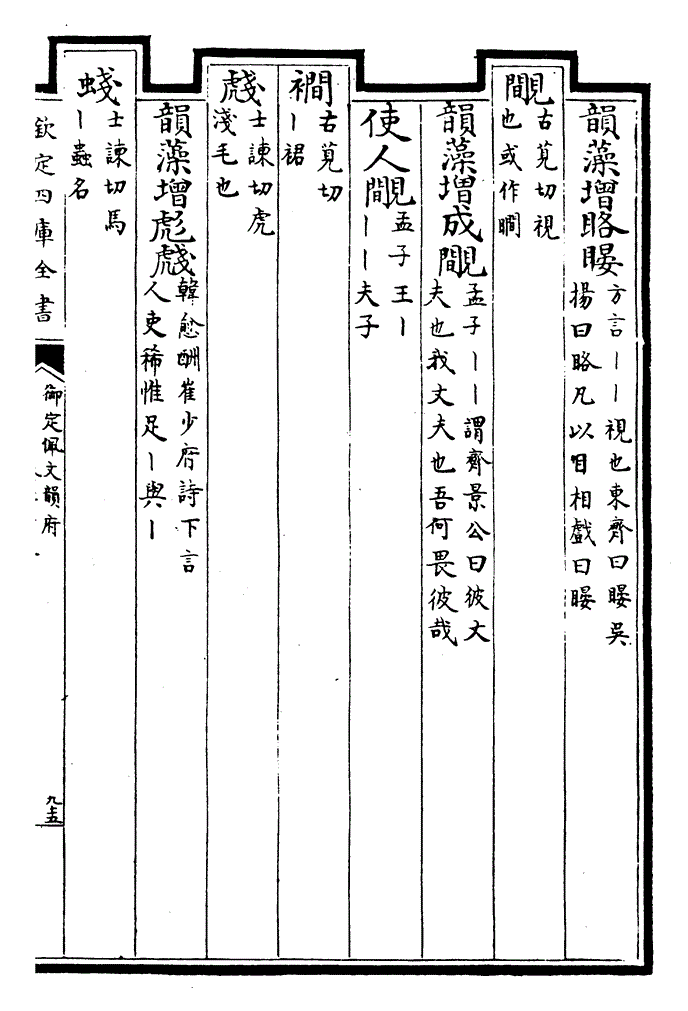 韻藻增䀩䁙方言丨丨視也東齊曰䁙吳
揚曰䀩凡以目相戲曰䁙
覸古莧切視
也或作瞷
韻藻增成覸孟子丨丨謂齊景公曰彼丈
夫也我丈夫也吾何畏彼哉
使人覸孟子王丨
丨丨夫子
襉古莧切
丨裙
虥士諫切虎
淺毛也
韻藻增彪虥韓愈酬崔少府詩下言
人吏稀惟足丨與丨
䗃士諫切馬
丨蟲名
欽定四庫全書
御定佩文韻府
九五